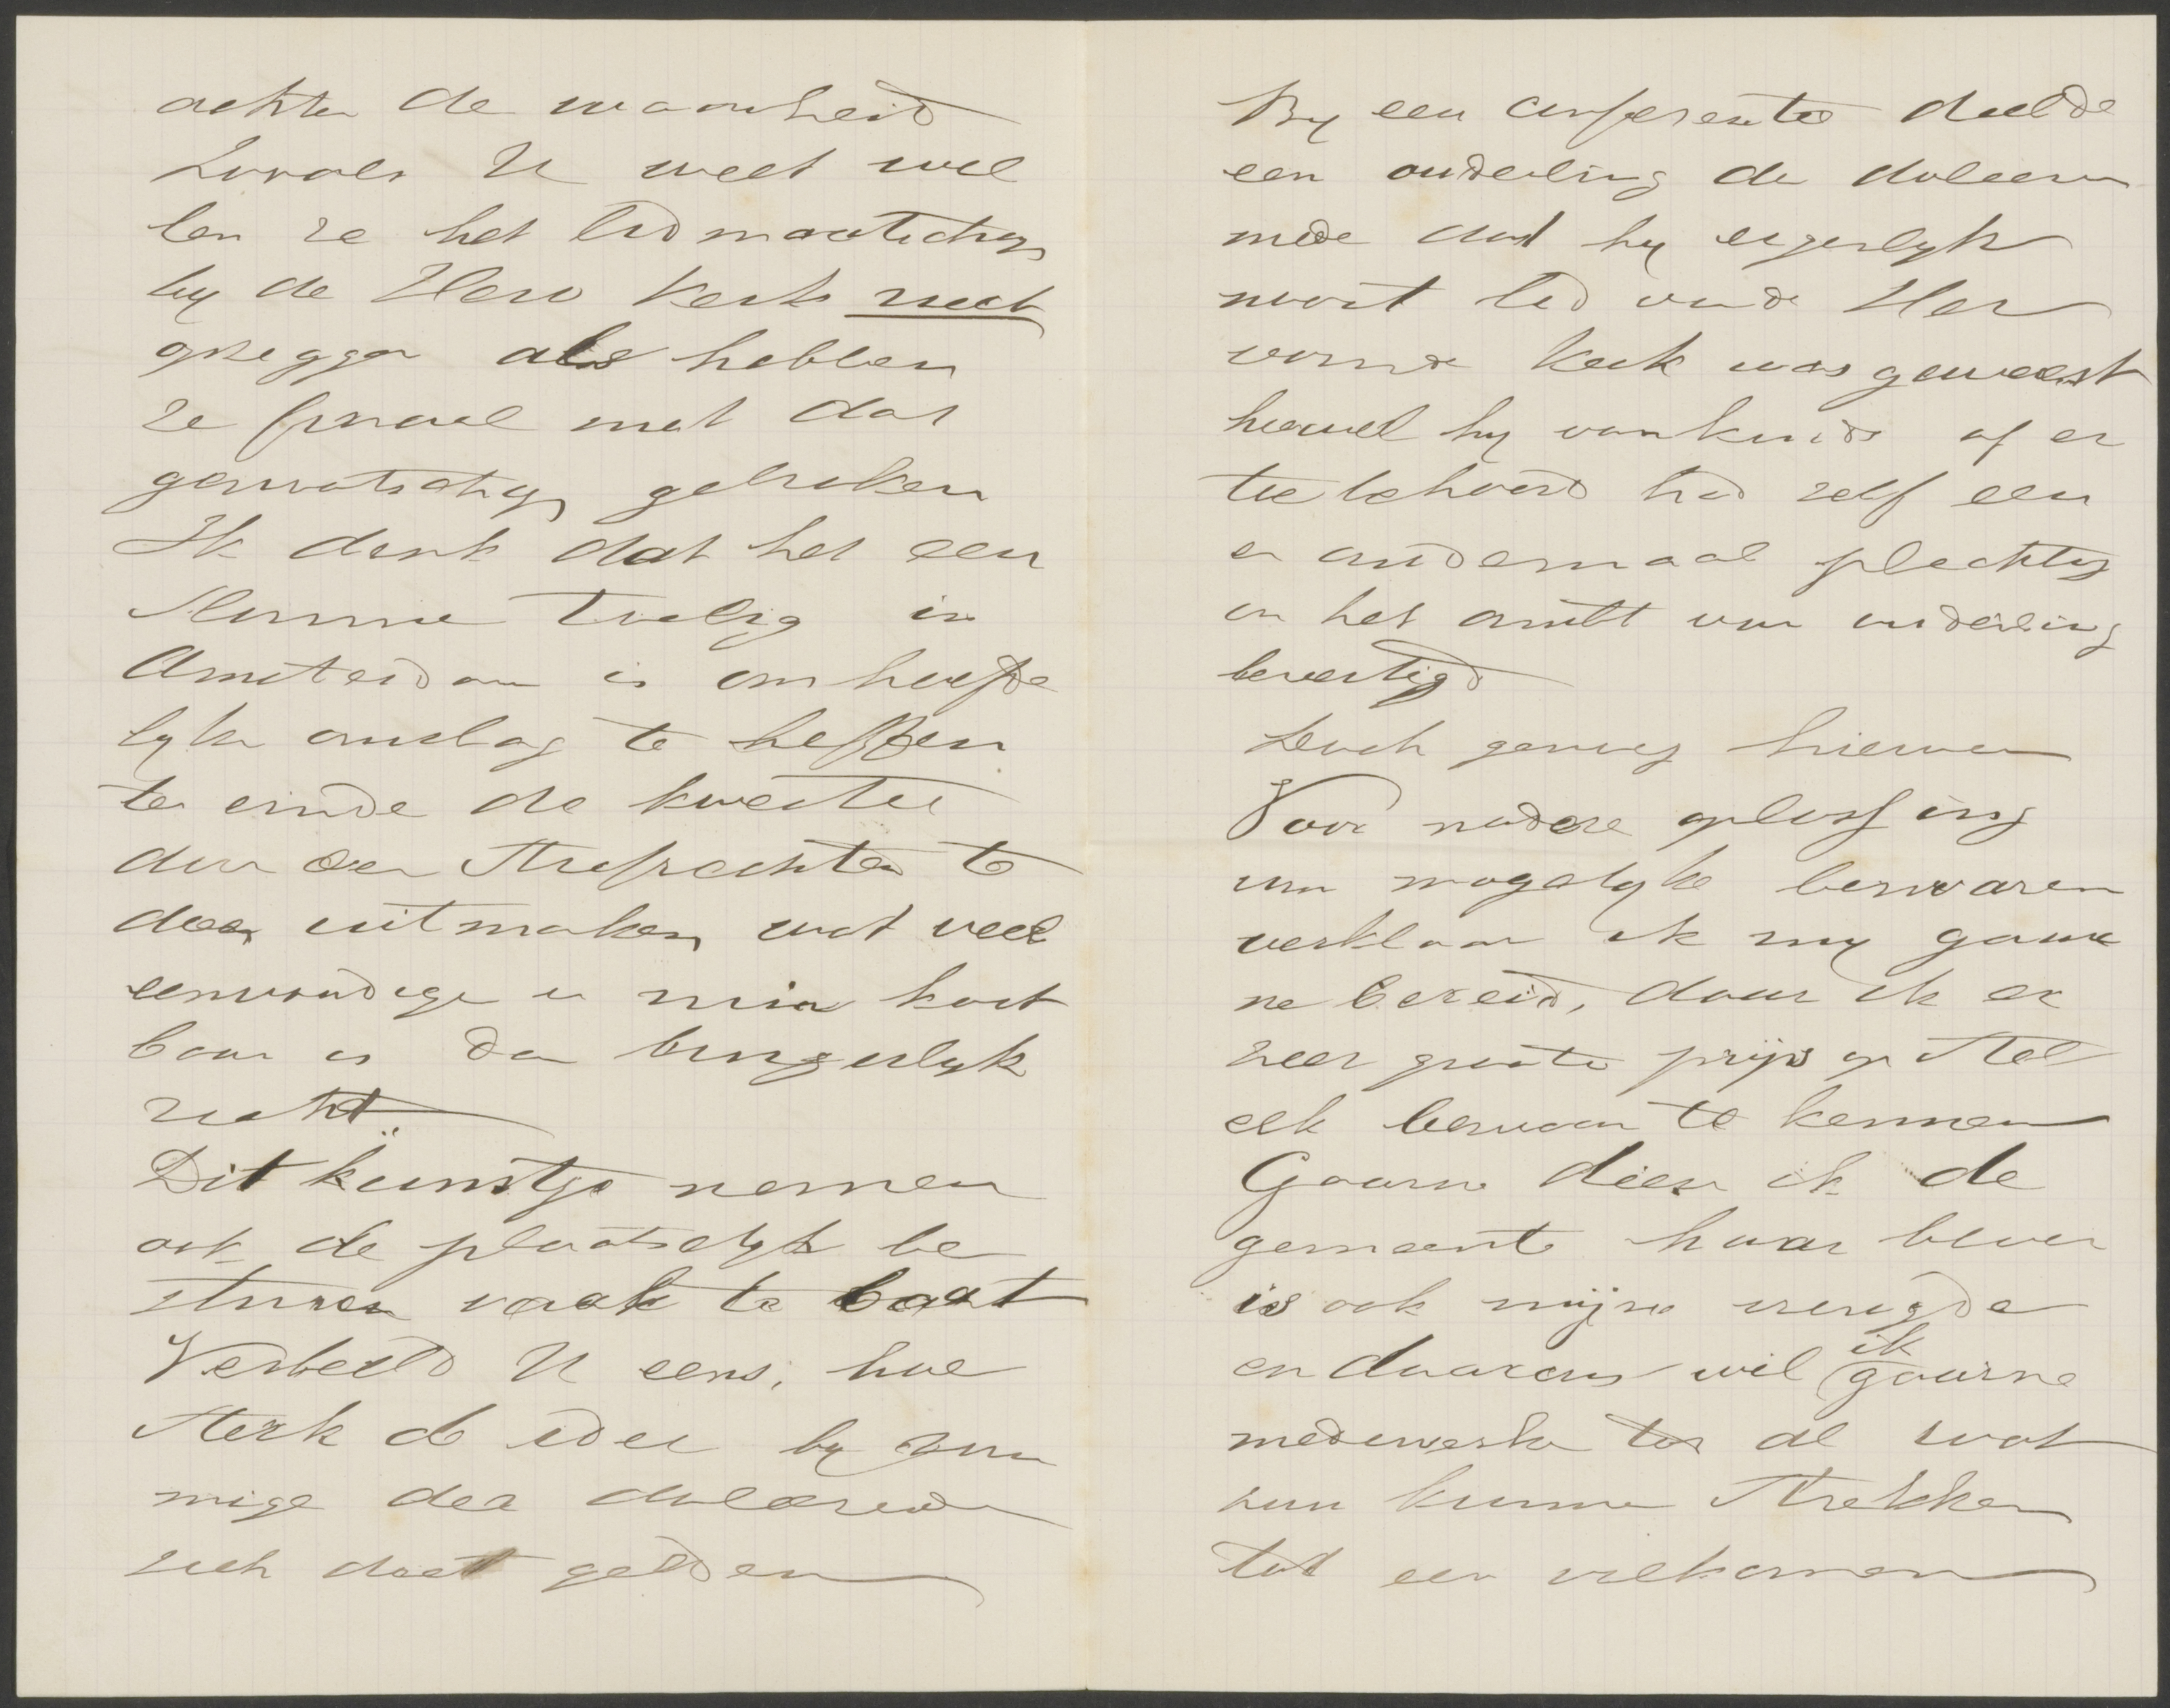 achter de waarheid
Zooals U weet wil
len ze het lidmaatschap
bij de Herv Kerk niet
opzeggen als hebben
ze finaal met dat
genootschap gebroken
Ik denk dat het een
in
Amsterdam is om hoofde
lyke omslag te heffen
ten einde de kwestie
door den Strafrechter te
doen uitmaken wat veel
eenvoudiger en min kost
baar is dan burgerlyk
recht
Dit kunstje nemen
ook de plaatselyke be
sturen vaak te baat
Verbeeld U eens, hoe
sterk de idee by som
mige der doleerende
zich doet gelden
By een conferentie deelde
een ouderling der doleeren
mede dat hy eigenlyk
nooit lid van de Her
vormde Kerk was geweest
hoewel hy van kinds af er
toe behoord had zelf een
en andermaal plechtig
in het ambt van ouderling
bevestigd
Doch genoeg hiervan
Voor nadere oplossing
van mogelyke bezwaren
verklaar ik my gaar
ne bereid, daar ik er
zeer groote prijs op stel
elk bezwaar te kennen
Gaarne dien ik de
gemeente haar bloei
is ook mijne vreugde
en daarom wil ik gaarne
medewerken tot al wat
zou kunnen strekken
tot een volkomen